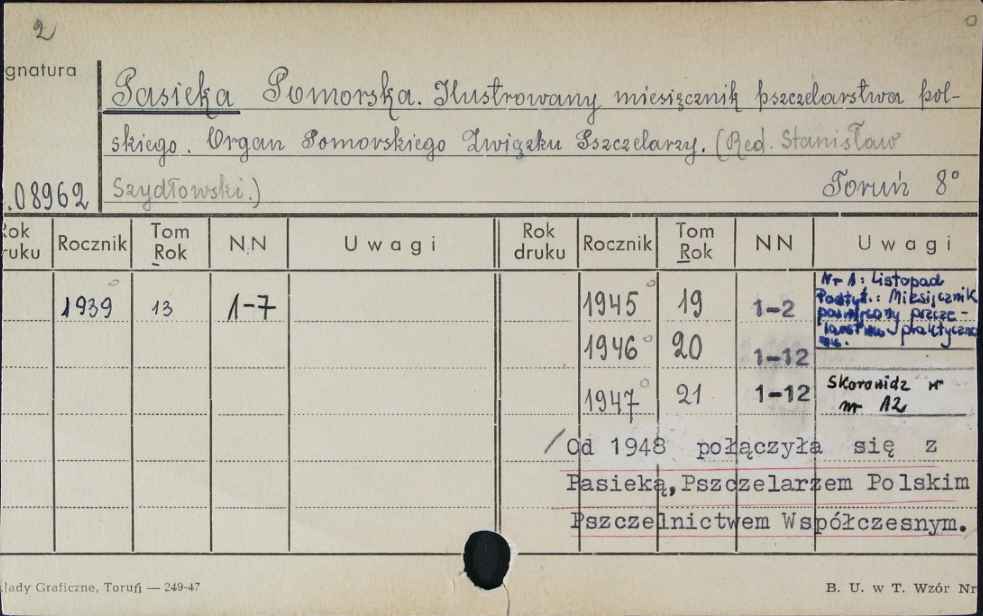 2
gnatura
Pasieka Pomorska. Ilustrowany miesięcznik pszczelarstwa pol-
skiego. Organ Pomorskiego Związku Pszczelarzy. (Red. Stanisław
.08962 Szydłowski.) Toruń 8°
Rok druku Rocznik Tom Rok NN Uwagi Rok druku Rocznik Tom Rok NN Uwagi
1939 13 1-7 1945 19 1-2 Nr 1: Listopad
Podtyt.: Miesięcznik
poświęcony pszcze-
larstwu praktyczne
mu.
1946 20 1-12
1947 21 1-12 Skorowidz w
nr 12
Od 1948 połączyła się z
Pasieką, Pszczelarzem Polskim
Pszczelnictwem Współczesnym.
łady Graficzne, Toruń — 249-47 B. U. w T. Wzór Nr